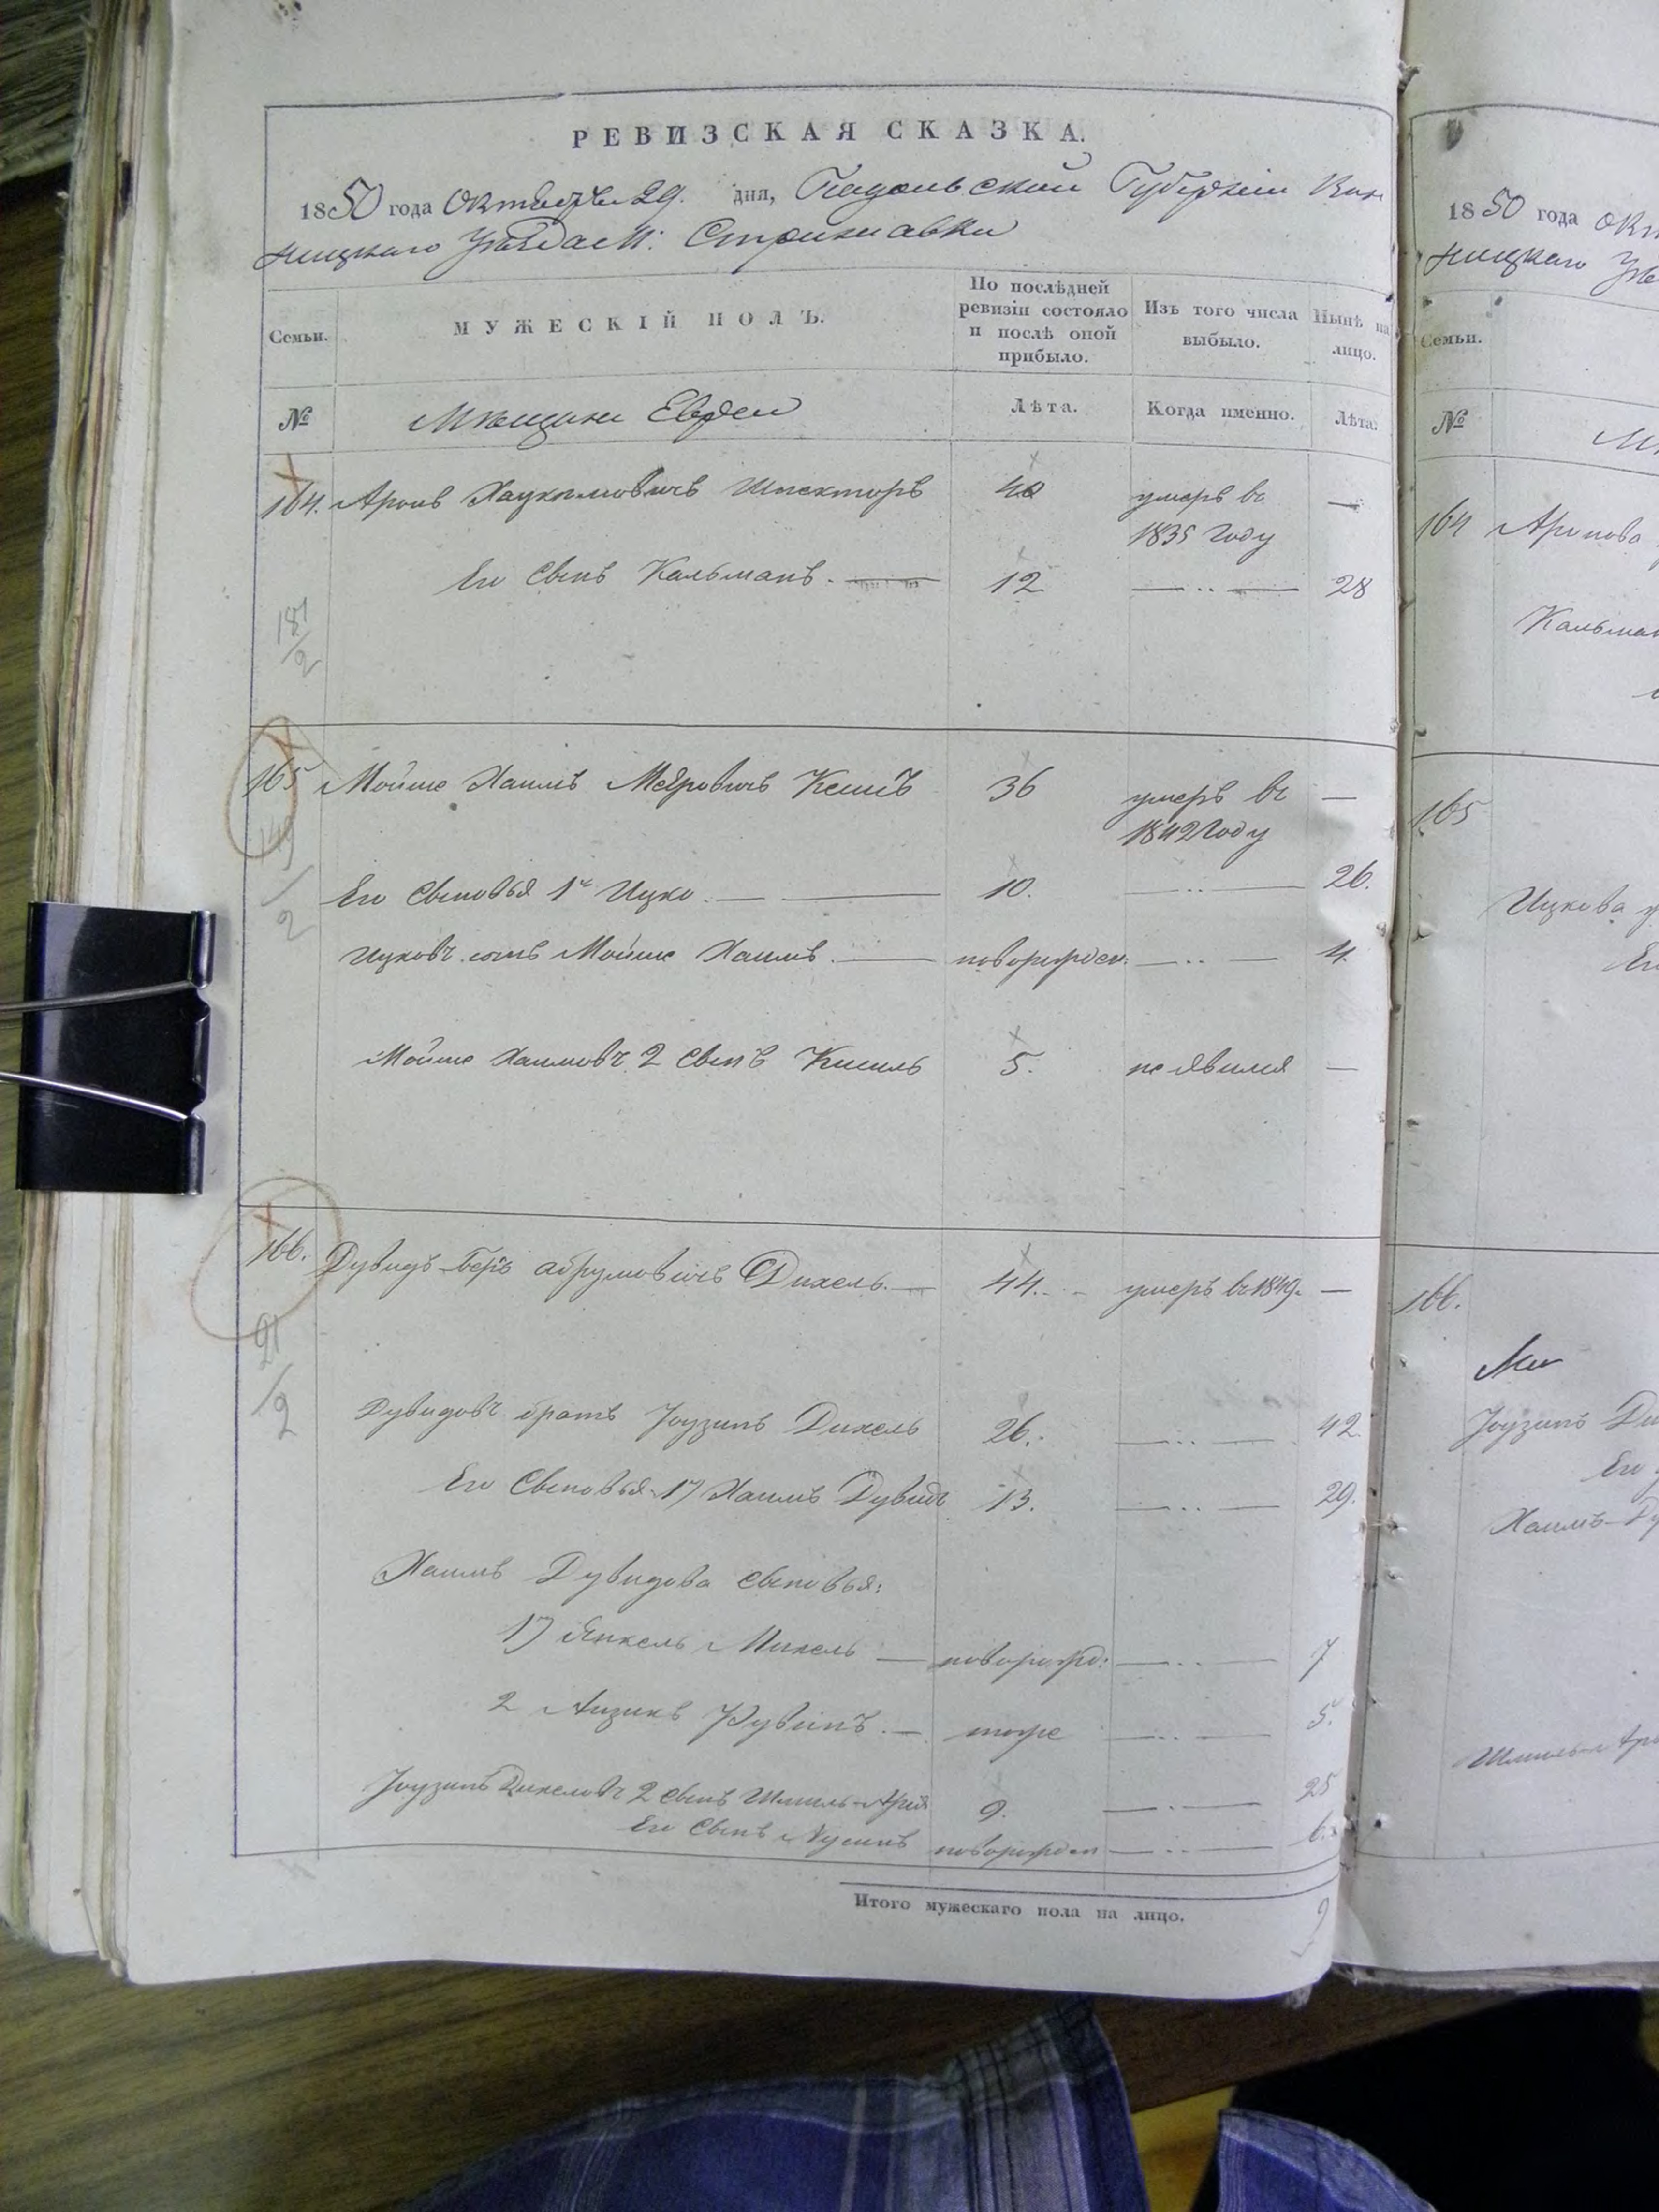 РЕВИЗСКАЯ СКАЗКА.
1850 года Октября 29. дня, Подольской Губерніи Вин
ницкаго Уѣзда М: Стрижавки
Семьи.
МУЖЕСКІЙ ПОЛЪ.
По послѣдней ревизіи состояло и послѣ оной прибыло.
Изъ того числа выбыло.
Нынѣ на лицо.
№
Мѣщане Евреи
Лѣта.
Когда именно.
Лѣта.
164. Аронъ Шпекторъ 40 умеръ въ —
1835 году
Его Сынъ Кальманъ. 12 28
181/2
165 Мойше Хаимъ Меяровичъ 36 умеръ въ —
1842 году
Его Сыновья 1й Ицко. 10. 26.
Ицковъ сынъ Мойше Хаимъ. новорожден: 4.
2
Мойше Хаимовъ 2 Сынъ Кисиль 5. не явился —
166. Дувидъ-Беръ Абрумовичъ Дихель. 44. умеръ въ 1849. —
21/2
Дувидовъ братъ Іоузипъ Дихель 26. 42
Его Сыновья 1) Хаимъ Дувидъ 13. 29.
Хаимъ Дувидова Сыновья:
1) Янкель Михель новорожд: 7
2 Айзикъ Рувинъ. тоже 5.
Іоузипъ Дихелювъ 2 Сынъ Шмиль-Арія 9. 25
Его Сынъ Нусинъ новорожден 6.
Итого мужескаго пола на лицо. 9
1850 года
ницкаго
Семьи.
№
164 Аронова
165
Ицкова
166.
Іоузипъ
Его
Хаимъ-